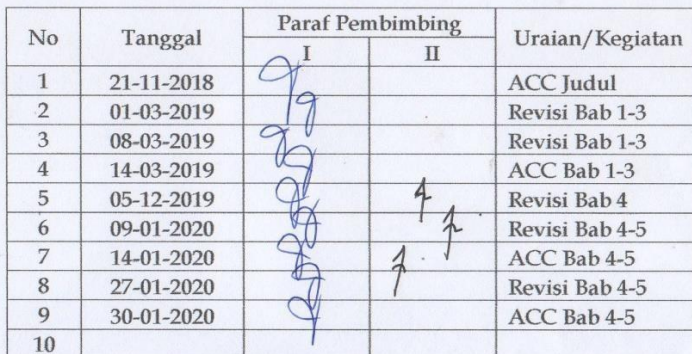 No Tanggal Paraf Pembimbing Uraian/Kegiatan
I II
1 21-11-2018 ACC Judul
2 01-03-2019 Revisi Bab 1-3
3 08-03-2019 Revisi Bab 1-3
4 14-03-2019 ACC Bab 1-3
5 05-12-2019 Revisi Bab 4
6 09-01-2020 Revisi Bab 4-5
7 14-01-2020 ACC Bab 4-5
8 27-01-2020 Revisi Bab 4-5
9 30-01-2020 ACC Bab 4-5
10